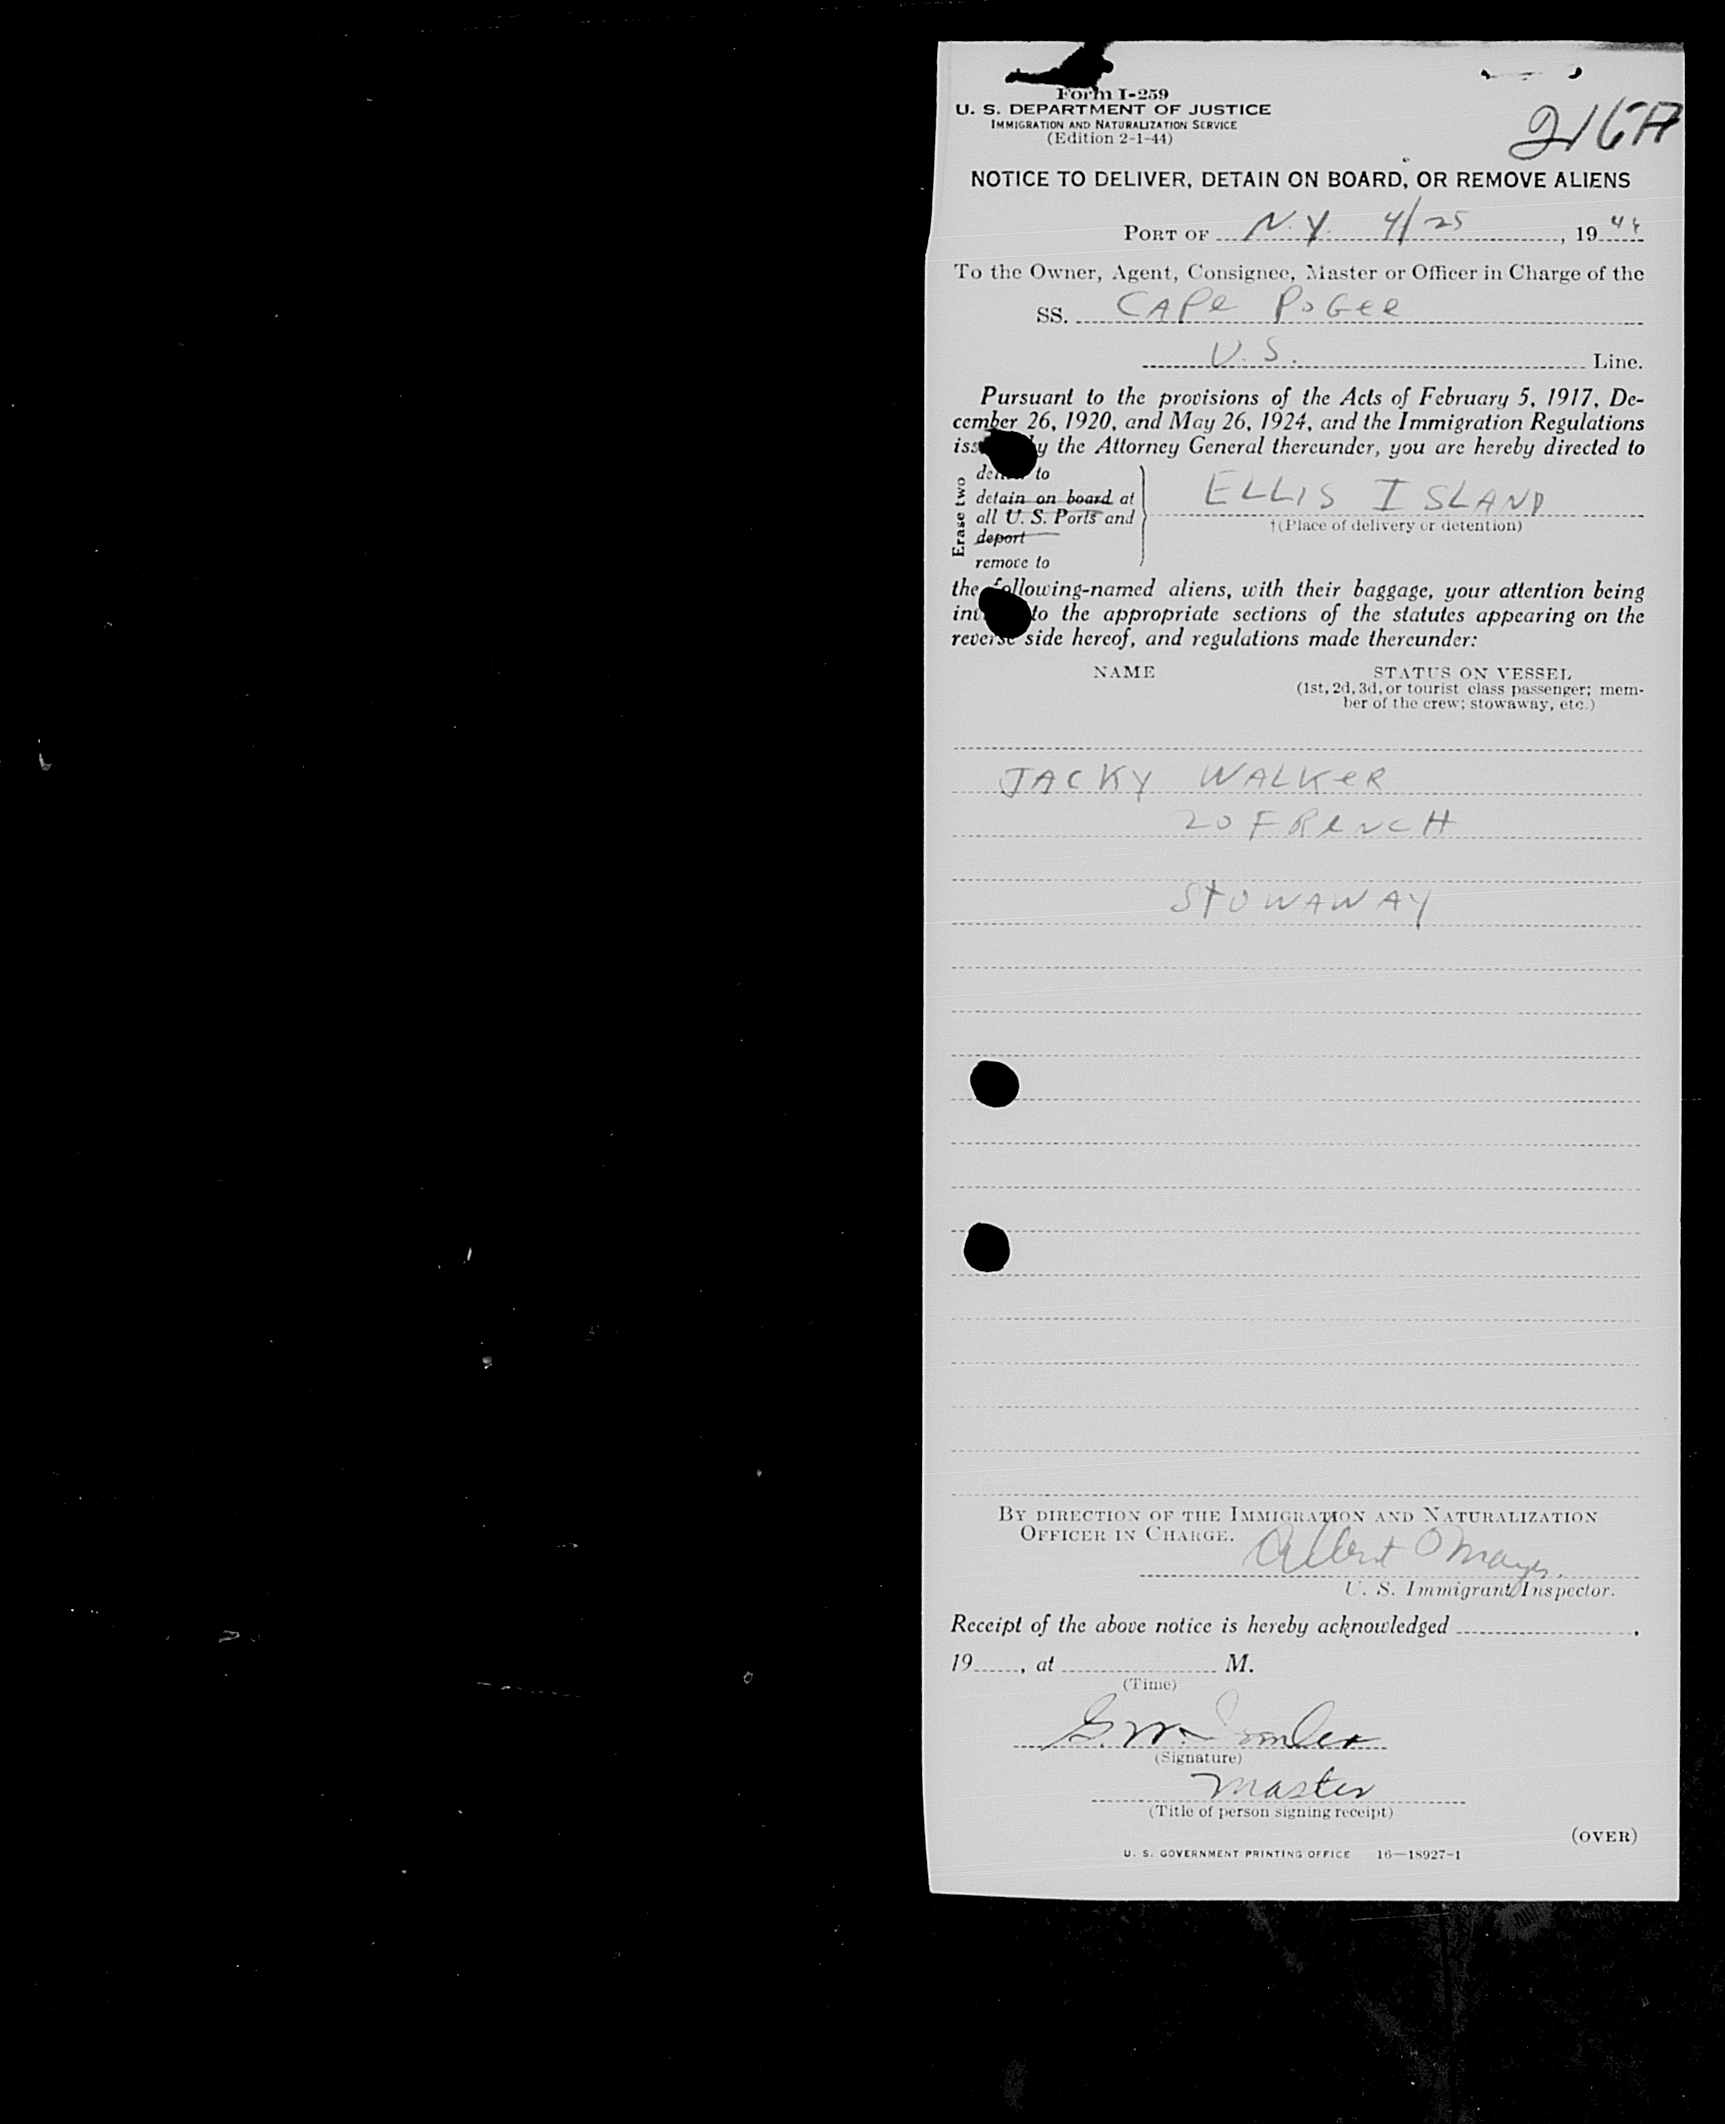 Form I-259
U. S. DEPARTMENT OF JUSTICE
IMMIGRATION AND NATURALIZATION SERVICE
(Edition 2-1-44)
216A
NOTICE TO DELIVER, DETAIN ON BOARD, OR REMOVE ALIENS
PORT OF N.Y. 4/25, 19
To the Owner, Agent, Consignee, Master or Officer in Charge of the
SS. CAPe PoGee
U.S. Line.
Pursuant to the provisions of the Acts of February 5, 1917, De-
cember 26, 1920, and May 26, 1924, and the Immigration Regulations
by the Attorney General thereunder, you are hereby directed to
Erase two
to
detain on board at
all U. S. Ports and
deport
remove to
ELLIS ISLAND
†(Place of delivery or detention)
the following-named aliens, with their baggage, your attention being
to the appropriate sections of the statutes appearing on the
reverse side hereof, and regulations made thereunder:
NAME
STATUS ON VESSEL
(1st, 2d, 3d, or tourist class passenger; mem-
ber of the crew; stowaway, etc.)
JACKY WALKeR
20 FReNCH
StOWAWAY
BY DIRECTION OF THE IMMIGRATION AND NATURALIZATION
OFFICER IN CHARGE.
Albert
U. S. Immigrant Inspector.
Receipt of the above notice is hereby acknowledged ,
19 , at M.
(Time)
G. W.
(Signature)
Master
(Title of person signing receipt)
(OVER)
U. S. GOVERNMENT PRINTING OFFICE 16—18927-1